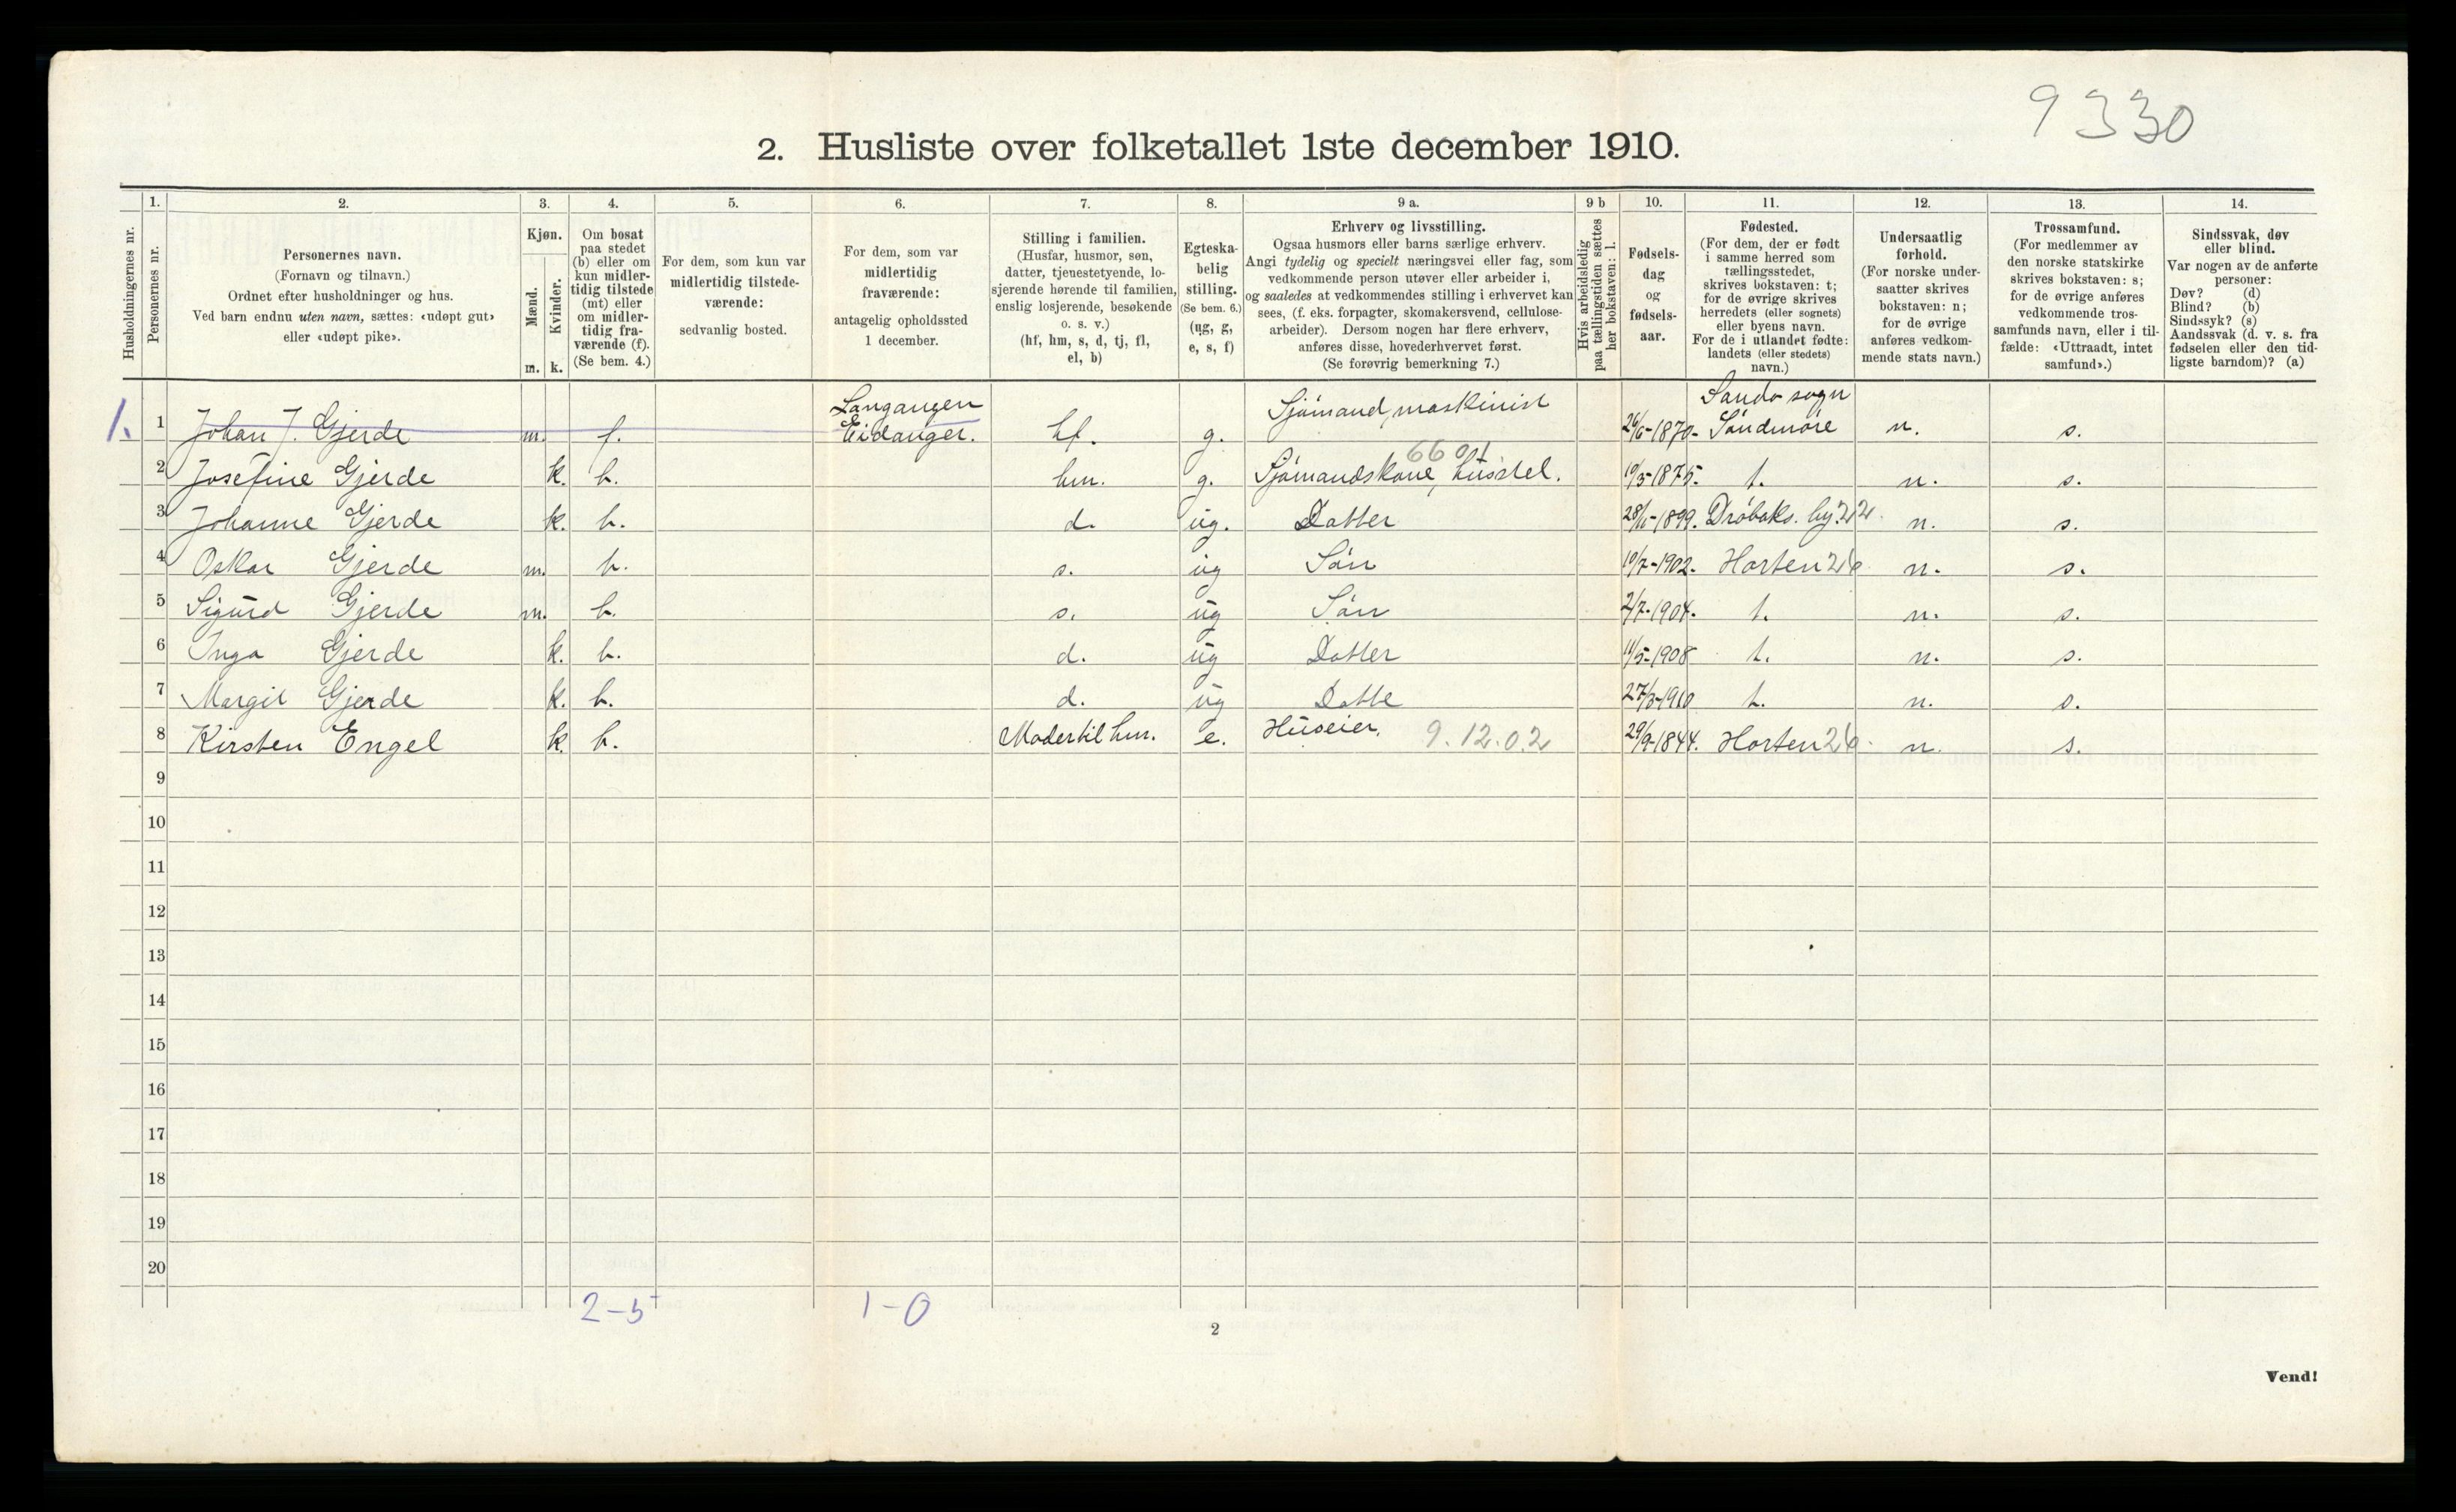 9330
2. Husliste over folketallet 1ste december 1910.
Husholdningernes nr.
1.
Personernes nr.
2.
Personernes navn.
(Fornavn og tilnavn.)
Ordnet efter husholdninger og hus.
Ved barn endnu uten navn, sættes: «udøpt gut»
eller «udøpt pike».
3.
Kjøn.
Mænd.
Kvinder.
m. k.
4.
Om bosat
paa stedet
(b) eller om
kun midler-
tidig tilstede
(mt) eller
om midler-
tidig fra-
værende (f).
(Se bem. 4.)
5.
For dem, som kun var
midlertidig tilstede-
værende:
sedvanlig bosted.
6.
For dem, som var
midlertidig
fraværende:
antagelig opholdssted
1 december.
7.
Stilling i familien.
(Husfar, husmor, søn,
datter, tjenestetyende, lo-
sjerende hørende til familien,
enslig losjerende, besøkende
o. s. v.)
(hf, hm, s, d, tj, fl,
el, b)
8.
Egteska-
belig
stilling.
(Se bem. 6.)
(ug, g,
e, s, f)
9 a.
Erhverv og livsstilling.
Ogsaa husmors eller barns særlige erhverv.
Angi tydelig og specielt næringsvei eller fag, som
vedkommende person utøver eller arbeider i,
og saaledes at vedkommendes stilling i erhvervet kan
sees, (f. eks. forpagter, skomakersvend, cellulose-
arbeider). Dersom nogen har flere erhverv,
anføres disse, hovederhvervet først.
(Se forøvrig bemerkning 7.)
9 b
Hvis arbeidsledig
paa tællingstiden sættes
her bokstaven: l.
10.
Fødsels-
dag
og
fødsels-
aar.
11.
Fødested.
(For dem, der er født
i samme herred som
tællingsstedet,
skrives bokstaven: t;
for de øvrige skrives
herredets (eller sognets)
eller byens navn.
For de i utlandet fødte:
landets (eller stedets)
navn.)
12.
Undersaatlig
forhold.
(For norske under-
saatter skrives
bokstaven: n;
for de øvrige
anføres vedkom-
mende stats navn.)
13.
Trossamfund.
(For medlemmer av
den norske statskirke
skrives bokstaven: s;
for de øvrige anføres
vedkommende tros-
samfunds navn, eller i til-
fælde: «Uttraadt, intet
samfund».)
14.
Sindssvak, døv
eller blind.
Var nogen av de anførte
personer:
Døv? (d)
Blind? (b)
Sindssyk? (s)
Aandssvak (d. v. s. fra
fødselen eller den tid-
ligste barndom)? (a)
Langangen Sjömand, maskinist Sando sogn
1. 1 Johan J. Gjerde m. f. Eidanger. hf. g. 26/6-1870- Söndmöre n. s.
6601
2 Josefine Gjerde k. b. hm. g. Sjömandskone, husstel. 10/3-1875. t. n. s.
3 Johanne Gjerde k. b. d. ug. Datter 1899. Dröbaks. by. 22. n. s.
4 Oskar Gjerde m. b. s. ug Sön 10/7-1902. Horten 26 n. s.
5 Sigurd Gjerde m. b. s. ug Sön 2/7-1904. t. n. s.
6 Inga Gjerde k. b. d. ug Datter 11/5-1908 t. n. s.
7 Margit Gjerde k. b. d. ug Datte 1910 t. n. s.
8 Kirsten Engel k. b. Moder til hm. e. Huseier. 9.12.02 29/9-1844. Horten 26. n. s.
9
10
11
12
13
14
15
16
17
18
19
20
2-5 1-0
2
Vend!